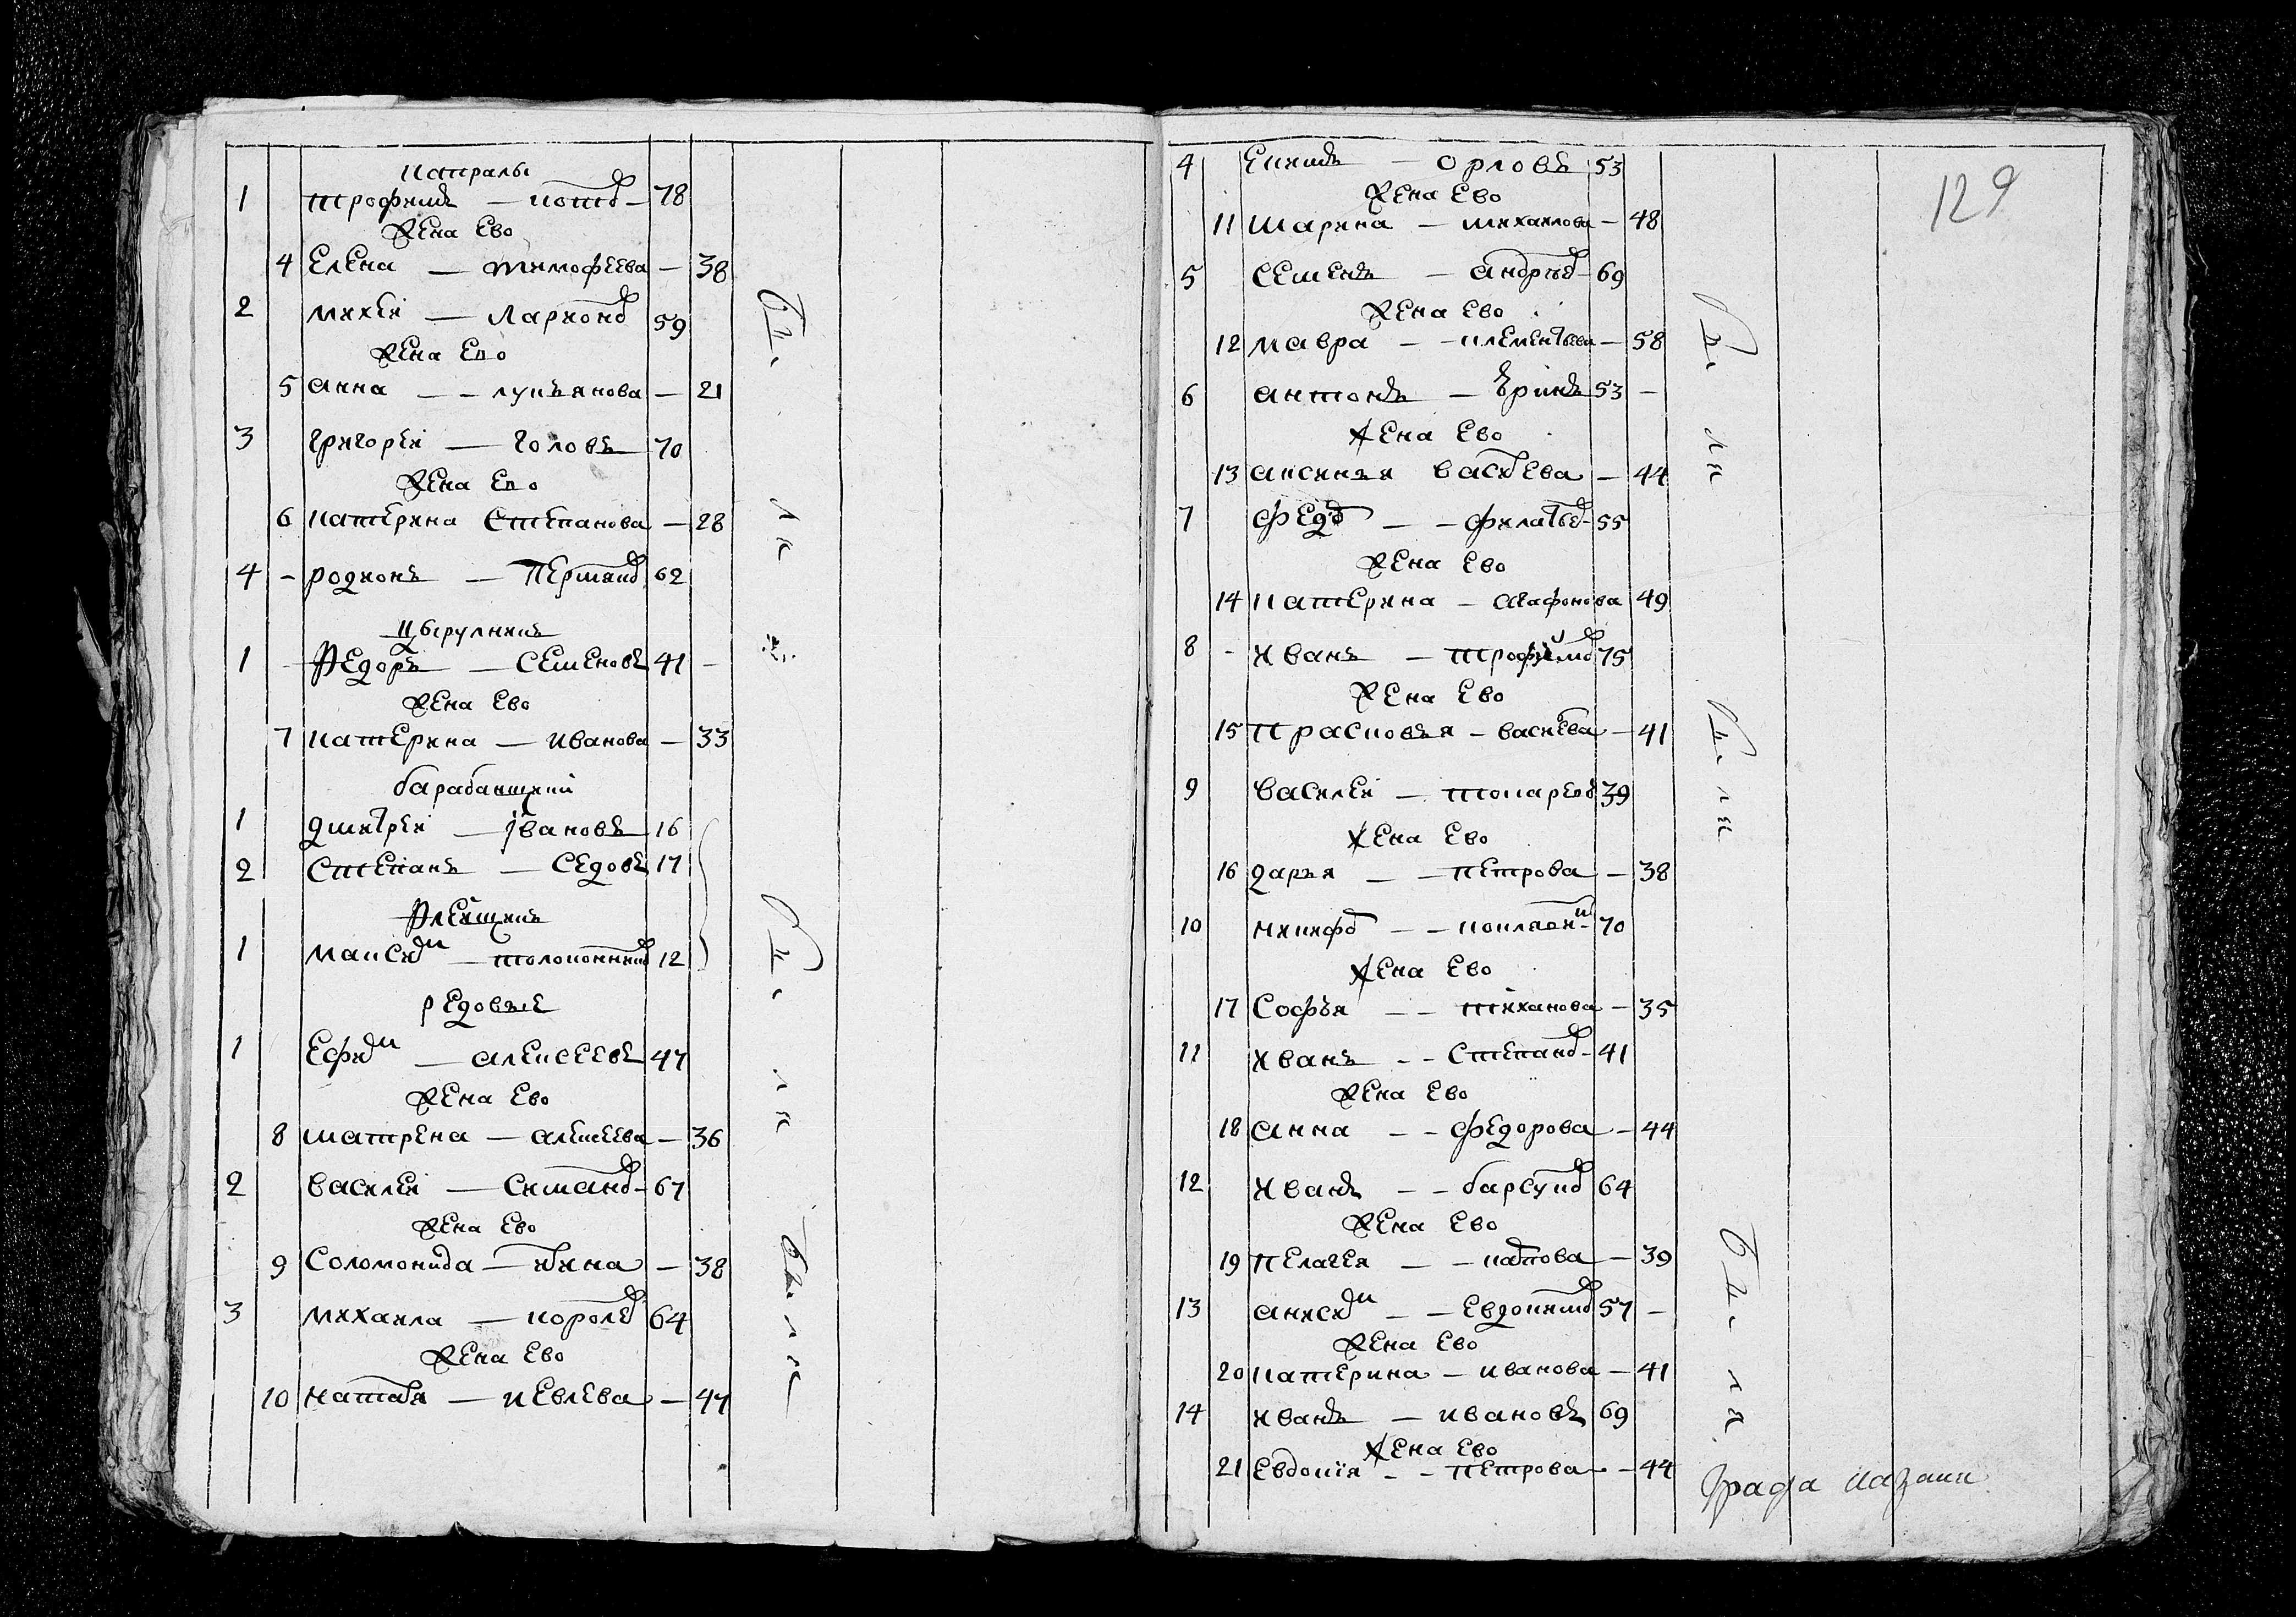 капралы
1 трофимъ — котов — 78
жена ево
4 елена — тимофеева — 38
2 михеи — ларионов 59
жена ево
5 анна — — лукъянова — 21
3 григореи — головъ 70
жена ево
6 катерина степанова — 28
4 - родионъ — 62
цырулникъ
1 - федоръ — семеновъ 41 -
жена ево
7 катерина — иванова — 33
барабанщики
1 дмитреи — iвановъ 16
2 степанъ — седовъ 17
флеищикъ
1 максим — 12
редовые
1 ефим — алексеевъ 47
жена ево
8 матрена — алексеева — 36
2 василеи — симанов — 67
жена ево
9 соломонида — — 38
3 михаила — королев 64
жена ево
10 наталя — иевлева — 47
были
были
были
4 екимъ — орловъ 53
жена ево
11 марина — михаилова — 48
5 семенъ — андреев — 69
жена ево
12 мавра — — клементьева — 58
6 антонъ — 53 —
жена ево
13 аксинья васильева — 44
7 федор — — филатьев — 55
жена ево
14 катерина — агафонова 49
8 - иванъ — трофимов 75
жена ево
15 прасковья — васильева — 41
9 василеи — токарев 39
жена ево
16 дарья — — петрова — 38
10 никифор — — 70
жена ево
17 софья — — тиханова — 35
11 иванъ — — степанов — 41
жена ево
18 анна — — федорова — 44
12 иванъ — — барсуков 64
жена ево
19 пелагея — — — 39
13 анисим — — евдокимов 57 —
жена ево
20 катерина — иванова — 41
14 иванъ — ивановъ 69
жена ево
21 евдокия — — петрова — — 44
были
были
были
града казани
129